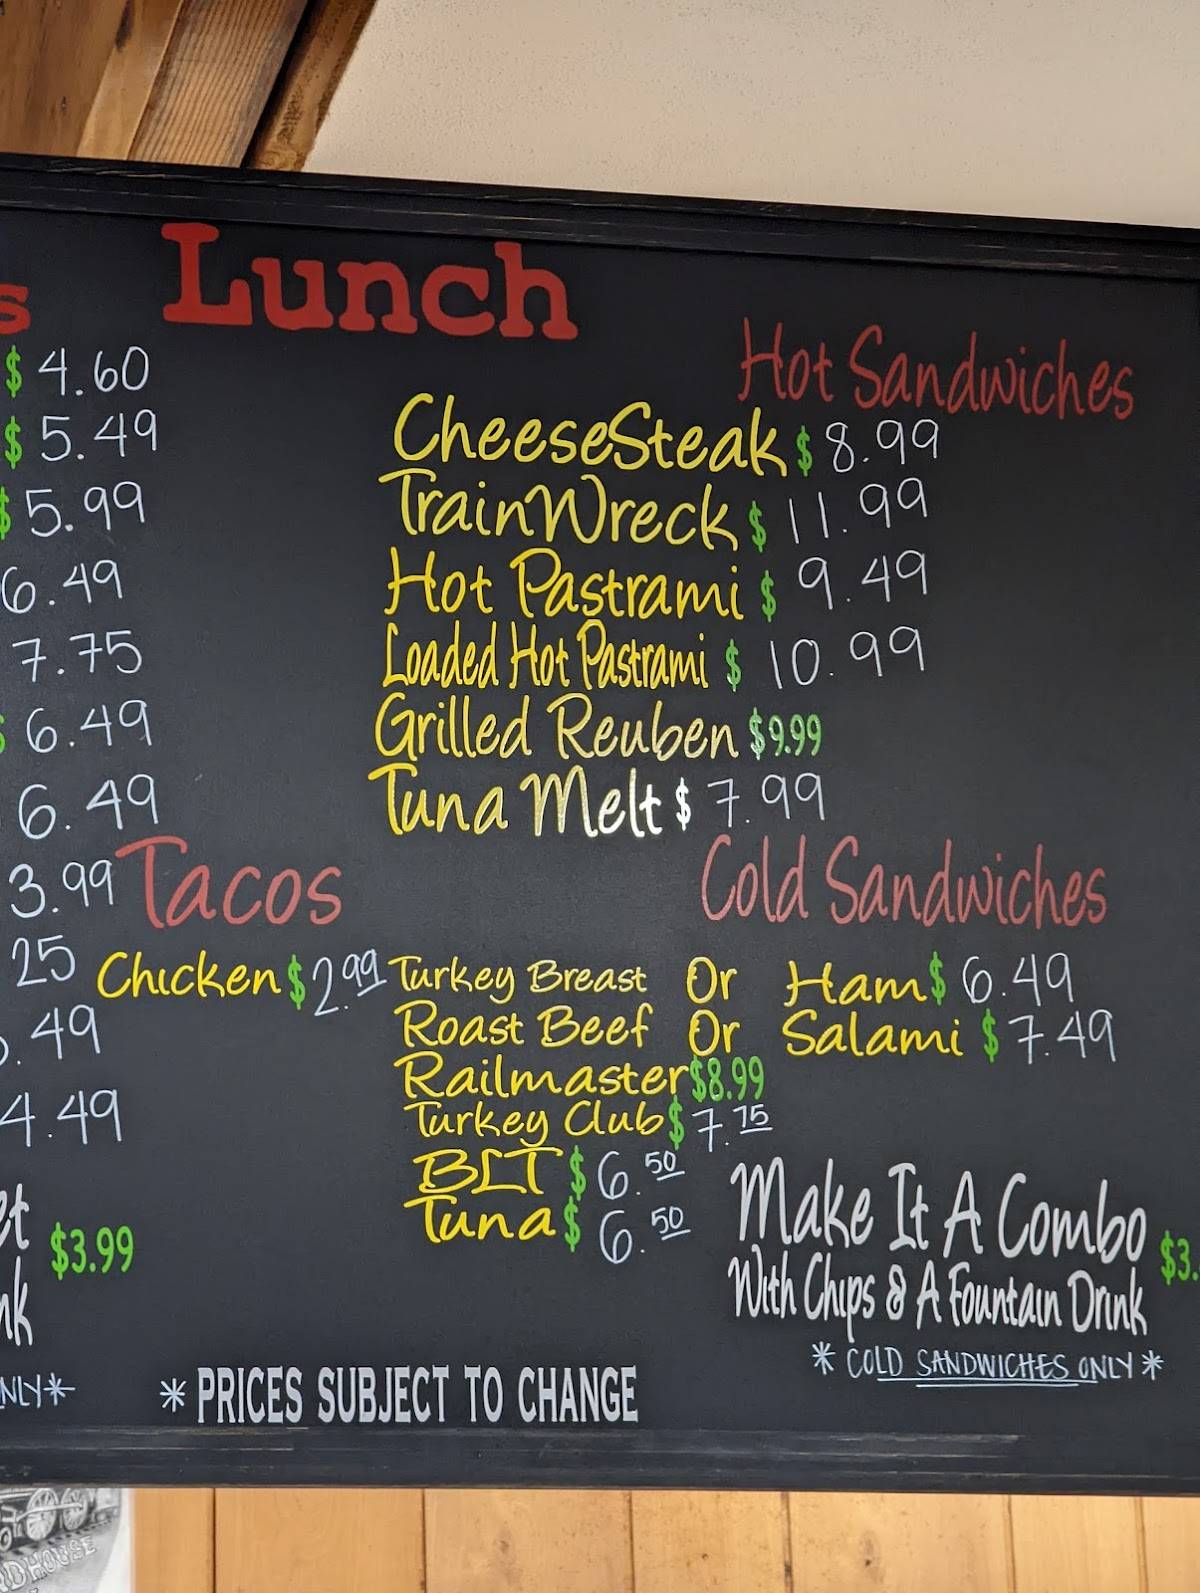 Lunch
s
$ 4.60
$ 5.49
$ 5.99
6.49
7.75
$ 6.49
6.49
3.99
25
.49
4.49
$3.99
nk
NLY*
Hot Sandwiches
CheeseSteak $ 8.99
TrainWreck $ 11.99
Hot Pastrami $ 9.49
Loaded Hot Pastrami $ 10.99
Grilled Reuben $9.99
Tuna Melt $ 7.99
Tacos
Chicken $ 2.99
Cold Sandwiches
Turkey Breast Or Ham $ 6.49
Roast Beef Or Salami $ 7.49
Railmaster $8.99
Turkey Club $ 7.75
BLT $ 6.50
Tuna $ 6.50
Make It A Combo $3.
With Chips & A Fountain Drink
* COLD SANDWICHES ONLY *
* PRICES SUBJECT TO CHANGE
DHOUSE